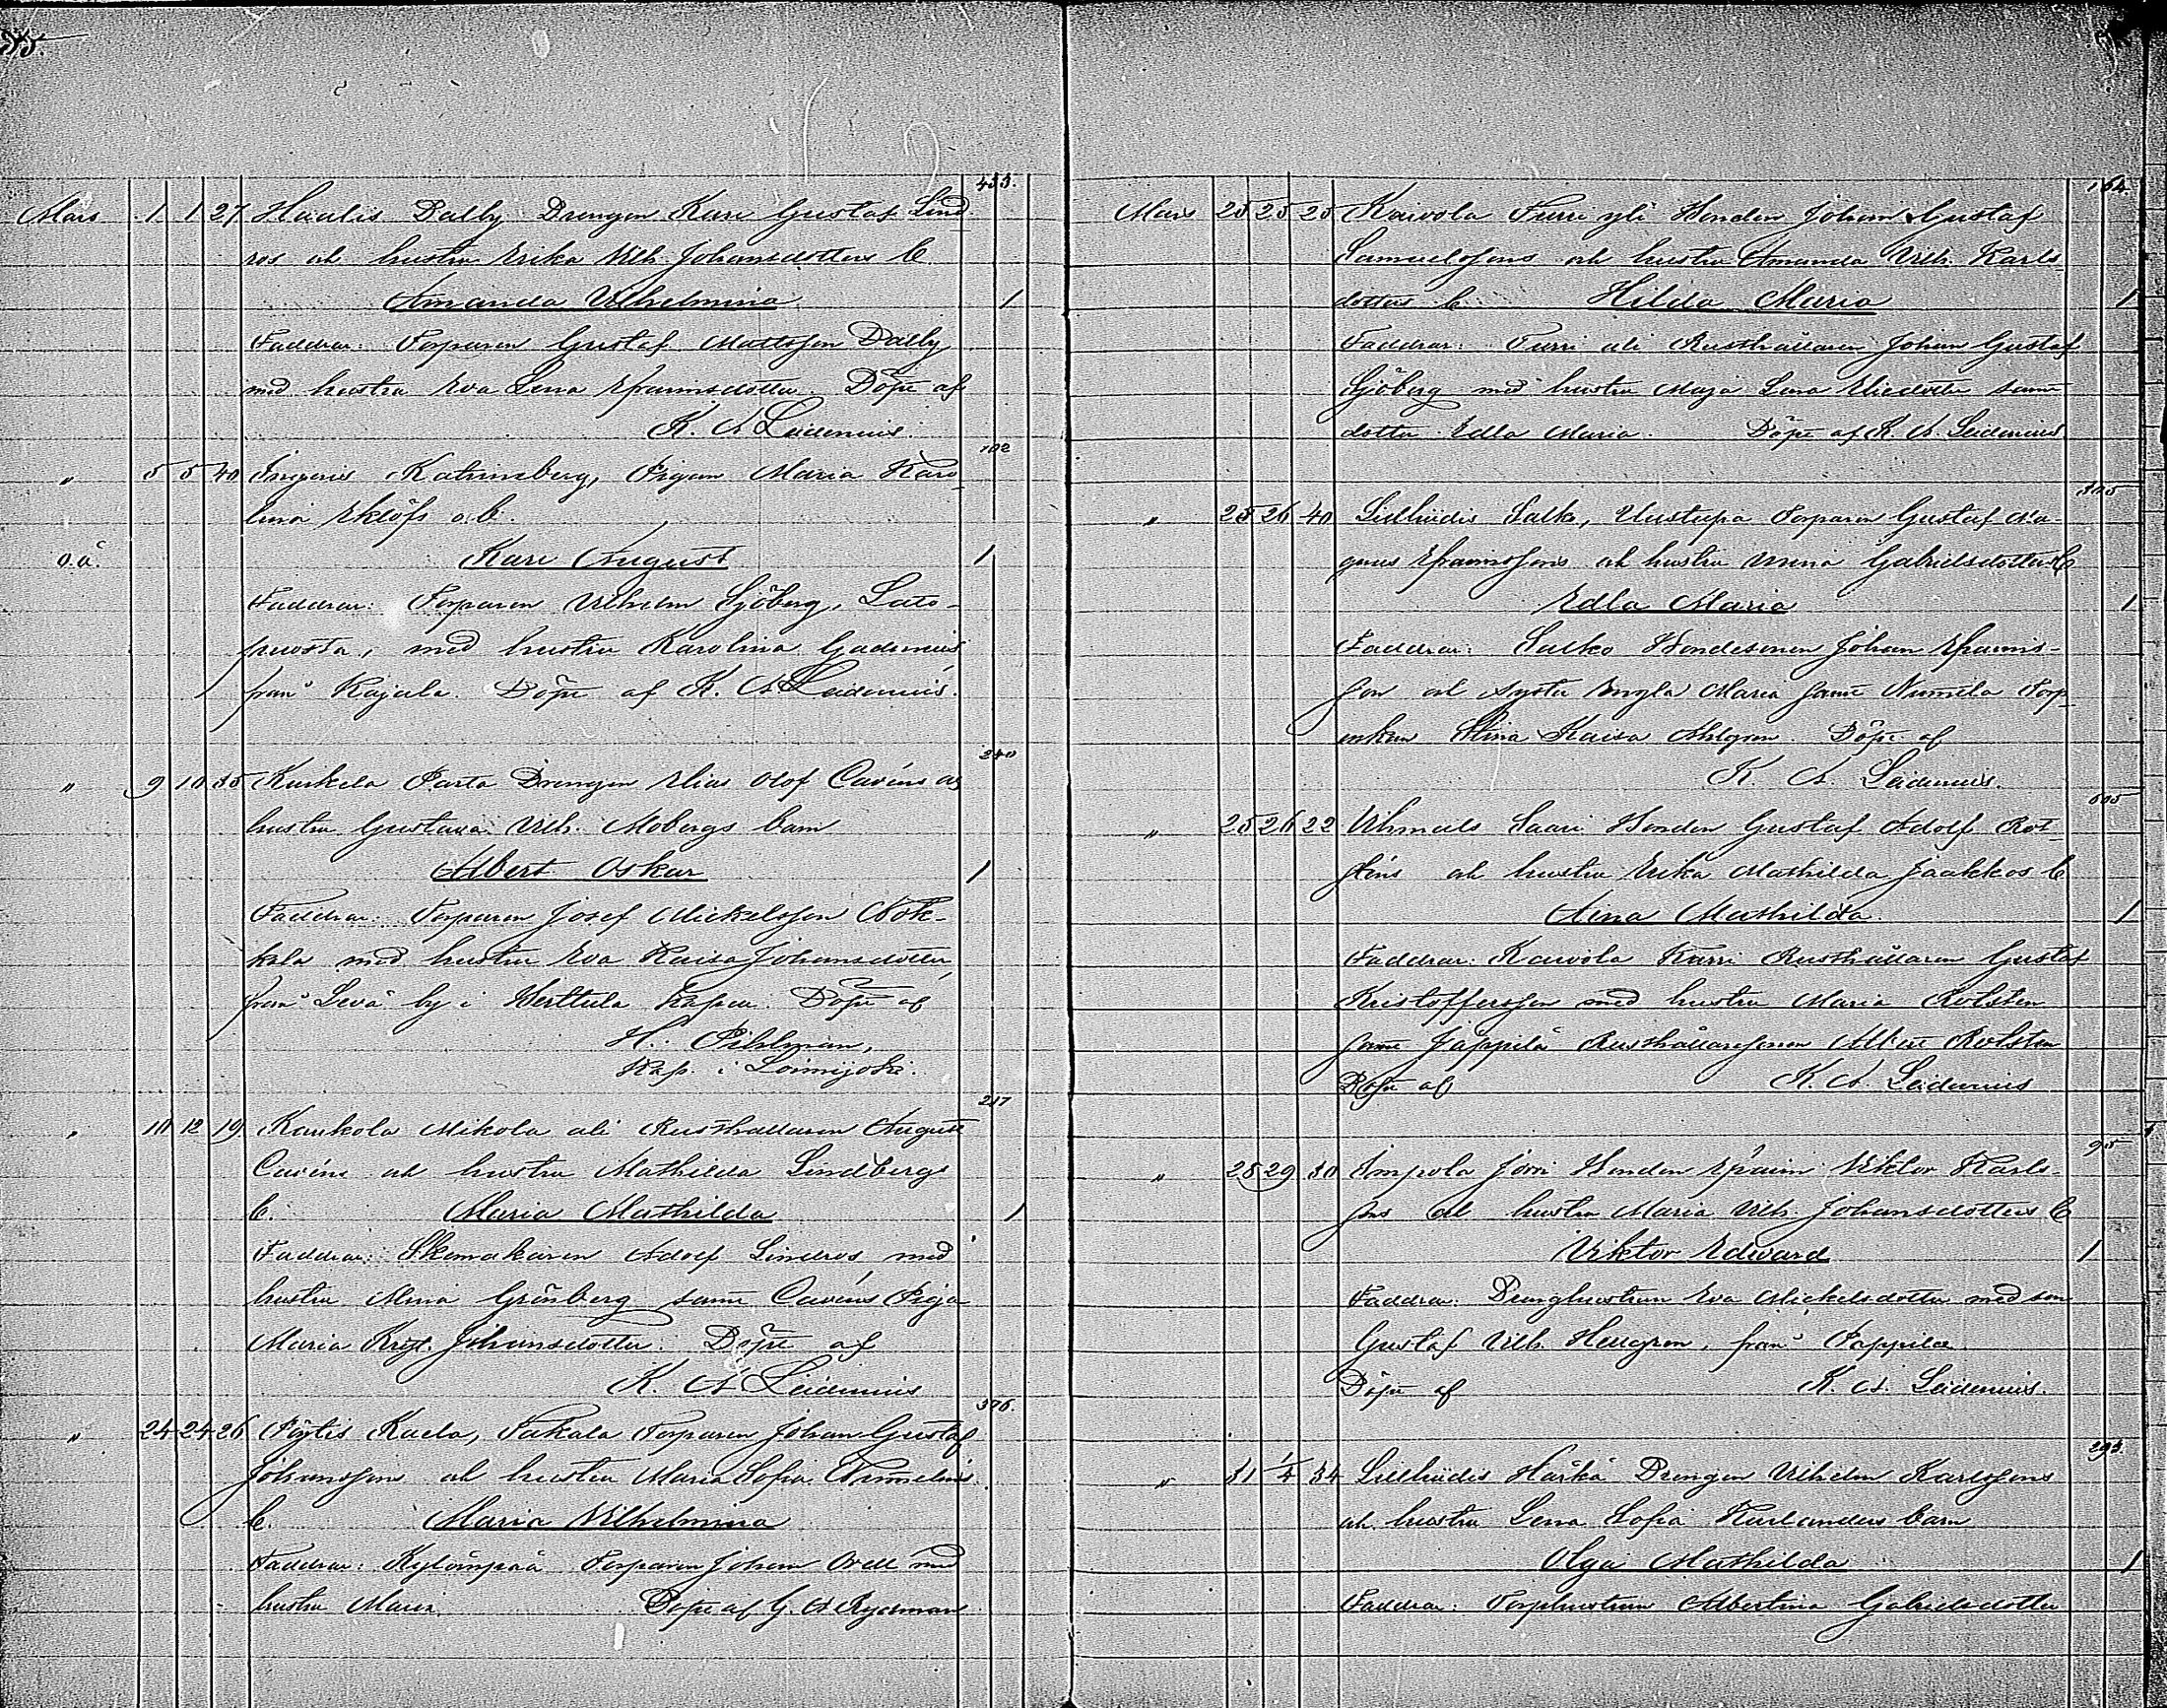 35.
433.
Mars 1 1 27 Haalis Dalby Drengen Karl Gustaf Lind-
ros och hustru Erika Vilh. Johansdotters b.
Amanda Vilhelmina 1
Faddrar: Torparen Gustaf Mattsson Dalby
med hustru Eva Lena Efraimsdotter. Döpt af
K. A. Leidenius.
102
" 5 5 40 Katrinsberg, Pigan Maria Karo-
lina Eklöfs o.b.
o.ä. Karl August 1
Faddrar: Torparen Vilhelm Sjöberg, Lato-
med hustru Karolina
från Kajala. Döpt af K. A. Leidenius.
240
" 9 10 35 Kuikela Parta Drengen Elias Olof Cavéns o.
hustru Gustava Vilh. Mobergs barn
Albert Oskar 1
Faddrar: Torparen Josef Mickelsson
kala med hustru Eva Kaisa Johansdotter
från Levä by i Herttula Döpt af
H. Pihlman,
Kap. i Loimijoki.
217
" 10 12 19 Kankola Mikola ali Rusthållaren August
Cavéns och hustru Mathilda Lindbergs
b. Maria Mathilda 1
Faddrar: Skomakaren Adolf Lindros med
hustru Mina Grönberg samt Cavéns Piga
Maria Krist. Johansdotter. Döpt af
K. A. Leidenius
376.
" 24 24 26 Pöytis Kaela, Takala Torparen Johan Gustaf
Johanssons och hustru Maria Sofia
b. Maria Vilhelmina
Faddrar: Kylänpää Torparen Johan Orell med
hustru Maria. Döpt af G. A. Rydman
164
Mars 25 25 25 Kawola Furri yli Bonden Johan Gustaf
Samuelssons och hustru Amanda Vilh. Karls-
dotters b. Hilda Maria 1
Faddrar: Furri ali Rusthållaren Johan Gustaf
Sjöberg med hustru Maja Lena Eliedotter samt
dotter Edla Maria. Döpt af K. A. Leidenius
305
" 25 26 40 Lielhiidis Salko, Uusitupa Torparen Gustaf Ma-
gnus Efraimssons och hustru Gabrielsdotters b
Edla Maria 1
Faddrar: Salko Bondesonen Johan Efraims-
son och syster Engla Maria samt Numela Torp-
enkan Stina Kaisa Ahlgren. Döpt af
K. A. Leidenius.
605
" 25 26 22 Vihmals Saari Bonden Gustaf Adolf Rot-
sténs och hustru Erika Mathilda Jaakkos b
Aina Mathilda 1
Faddrar: Kawola Karri Rusthållaren Gustaf
Kristoffersson med hustru Maria Rotsten
samt Jäppilä Rusthållaresonen Albert Rotsten
Döpt af K. A. Leidenius
95
" 25 29 30 Impola Jorri Bonden Efraim Viktor Karls-
sons och hustru Maria Vilh. Johansdotters b
Viktor Edward 1
Faddrar: Drenghustrun Eva Mickelsdotter med son
Gustaf Vilh. Hellgren, från Pappila
Döpt af K. A. Leidenius.
293.
" 31 1/4 34 Lielhiidis Härkä Drengen Vilhelm Karlssons
och hustru Lena Sofia Harlanders barn
Olga Mathilda 1
Faddrar: Torphustrun Albertina Gabrielsdotter